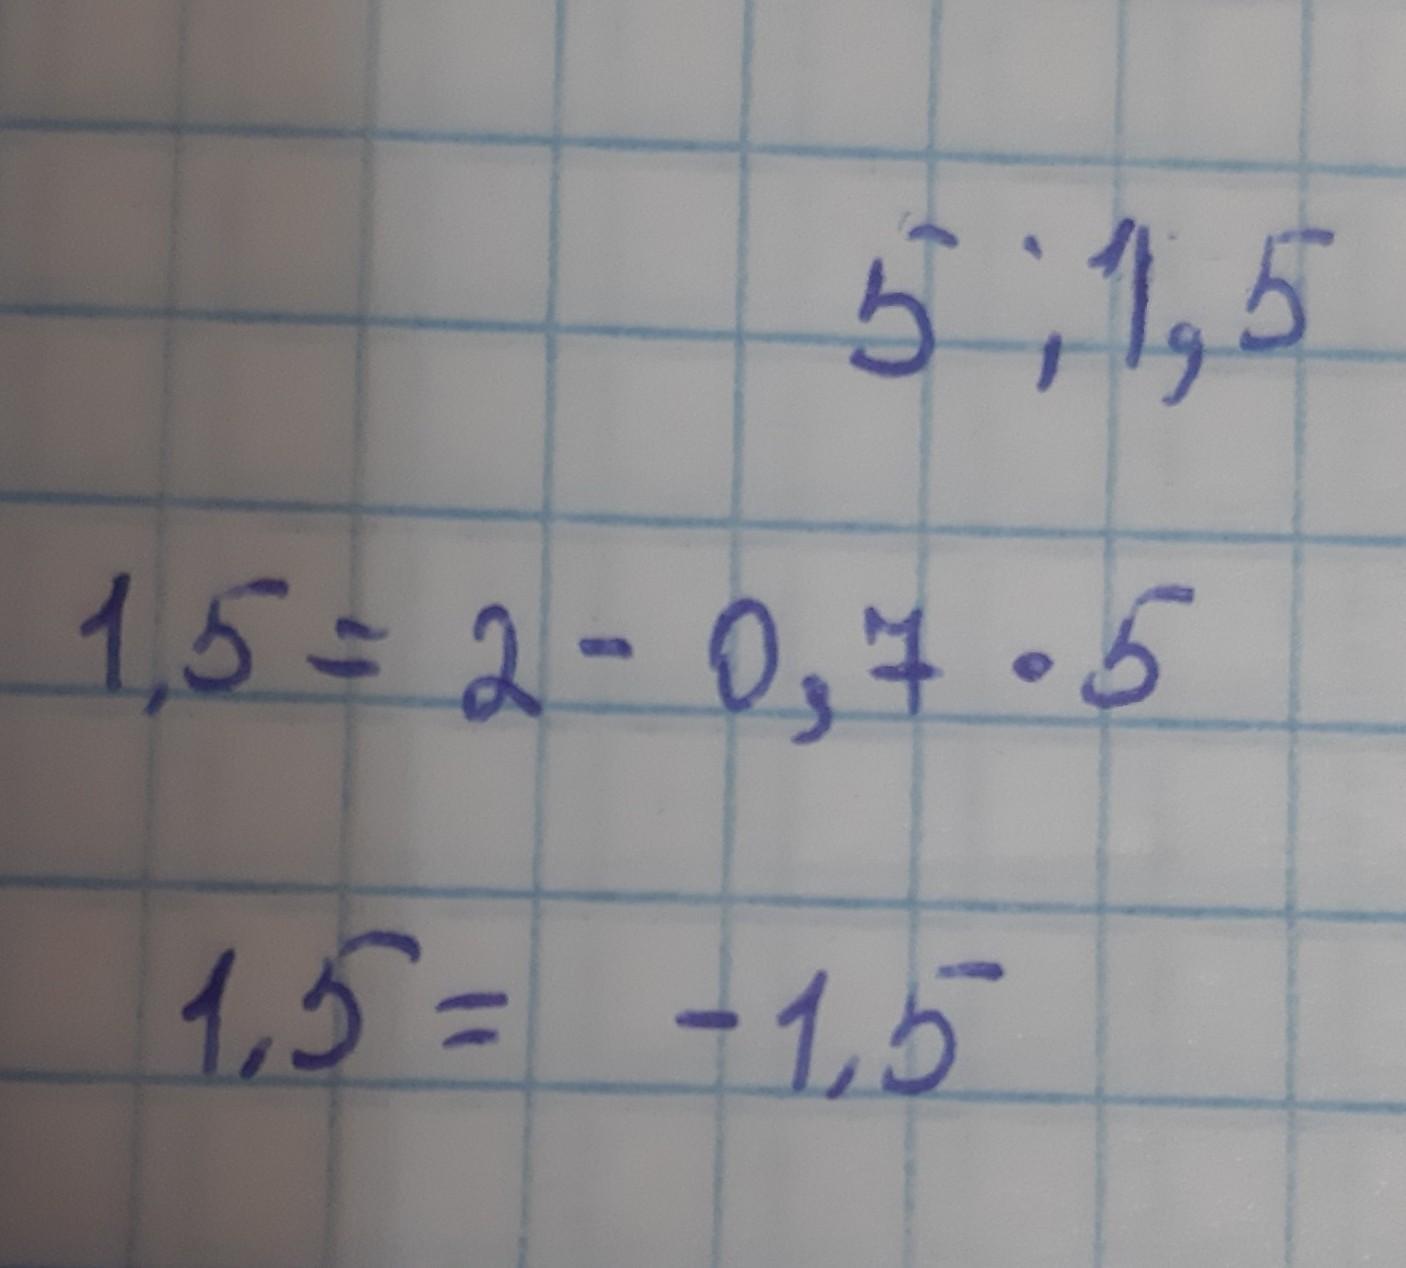 5 ; 1,5
1,5 = 2 - 0,7 · 5
1,5 = -1,5